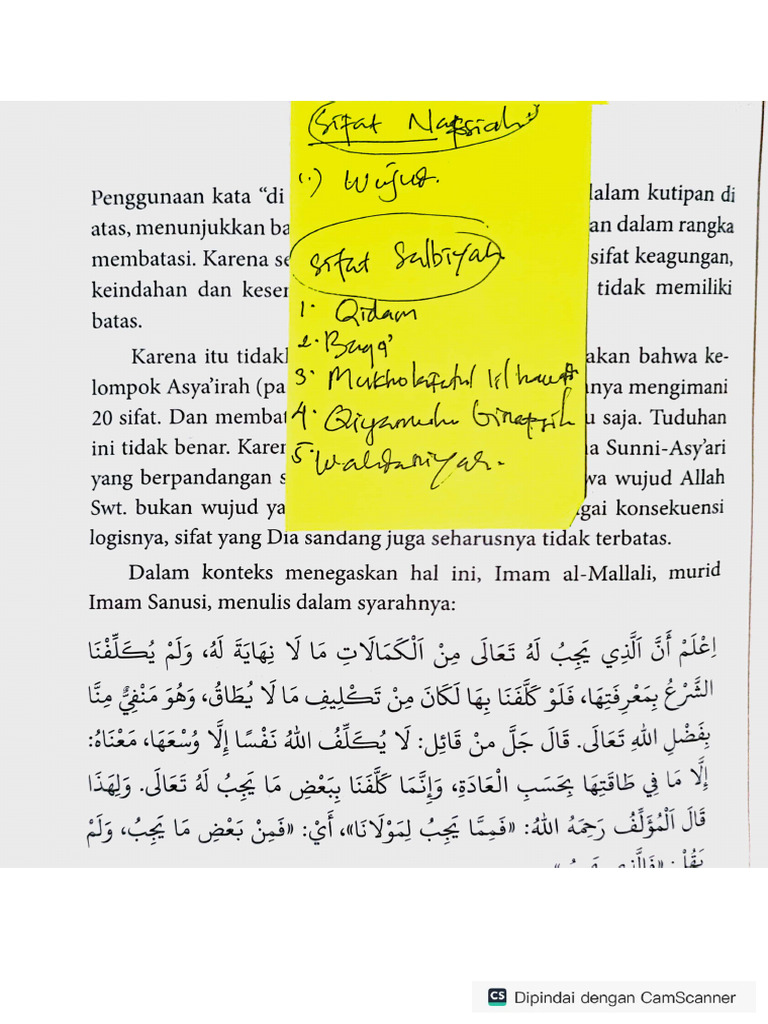 Sifat Nafsiah
1.) Wujud.
Sifat Salbiyah
1. Qidam
2. Baqa'
3. Mukholafatul lil hawadits
4. Qiyamuhu binafsih
5. Wahdaniyah.
Penggunaan kata “di dalam kutipan di
atas, menunjukkan ba an dalam rangka
membatasi. Karena se sifat keagungan,
keindahan dan keser tidak memiliki
batas.
Karena itu tidakl akan bahwa ke-
lompok Asya'irah (pa nya mengimani
20 sifat. Dan membat u saja. Tuduhan
ini tidak benar. Karer na Sunni-Asy'ari
yang berpandangan s wa wujud Allah
Swt. bukan wujud ya gai konsekuensi
logisnya, sifat yang Dia sandang juga seharusnya tidak terbatas.
Dalam konteks menegaskan hal ini, Imam al-Mallali, murid
Imam Sanusi, menulis dalam syarahnya:
اِعْلَمْ أَنَّ اَلَّذِي يَجِبُ لَهُ تَعَالَى مِنْ اَلْكَمَالَاتِ مَا لَا نِهَايَةَ لَهُ، وَلَمْ يُكَلِّفْنَا
الشَّرْعُ بِمَعْرِفَتِهَا، فَلَوْ كَلَّفَنَا بِهَا لَكَانَ مِنْ تَكْلِيفِ مَا لَا يُطَاقُ، وَهُوَ مَنْفِيٌّ مِنَّا
بِفَضْلِ اللهِ تَعَالَى. قَالَ جَلَّ مِنْ قَائِلٍ: لَا يُكَلِّفُ اللهُ نَفْسًا إِلَّا وُسْعَهَا، مَعْنَاهُ:
إِلَّا مَا فِي طَاقَتِهَا بِحَسَبِ الْعَادَةِ، وَإِنَّمَا كَلَّفَنَا بِبَعْضِ مَا يَجِبُ لَهُ تَعَالَى. وَلِهَذَا
قَالَ اَلْمُؤَلِّفُ رَحِمَهُ اللهُ: «فَمِمَّا يَجِبُ لِمَوْلَانَا»، أَيْ: «فَمِنْ بَعْضِ مَا يَجِبُ، وَلَمْ
CS Dipindai dengan CamScanner